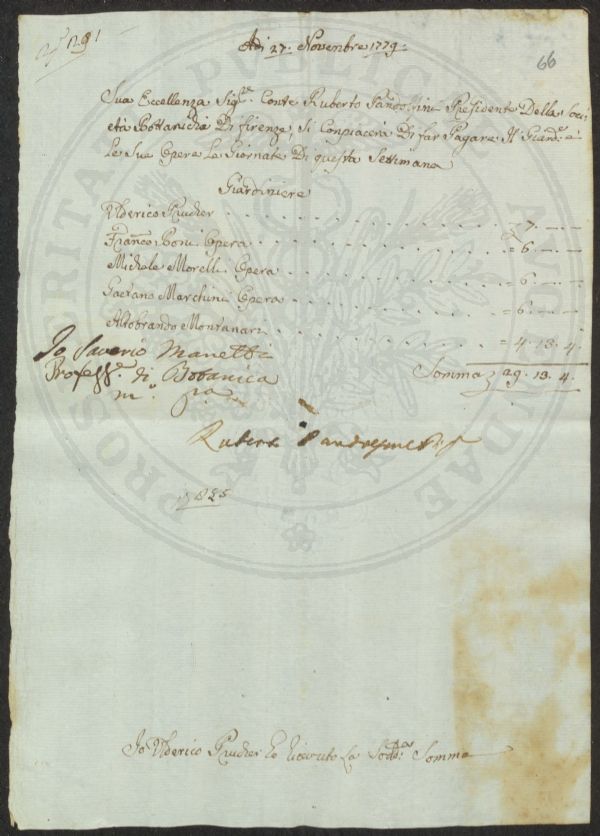 Adi 27. Novenbre 1779.
66
Sua Eccellenza Sig.re Conte Ruberto Pandolfini Presidente Della Soci
età Bottanicha Di firenze, Si Conpiacerà Di far Pagare Al Giard.re e
Le Sue Opere Le Giornate Di questa Settimana
Giardiniere
Ulderico Prucher . . . . . . . . . . = 7. — —
Franco Boni Opera . . . . . . . . . = 6. — —
Michele Morelli Opera . . . . . . . . = 6. — —
Gaetano Marchini Opera . . . . . . . = 6. — —
Aldobrando Montanari . . . . . . . . = 4. 13. 4.
Io Saverio Manetti
Profess.e di Botanica
m.o p.a
Somma 29. 13. 4.
Ruberto Pandolfini
1825
Io Ulderico Prucher ho ricevuto La Sod.a Somma
PUBLICAE PROSCRITAE